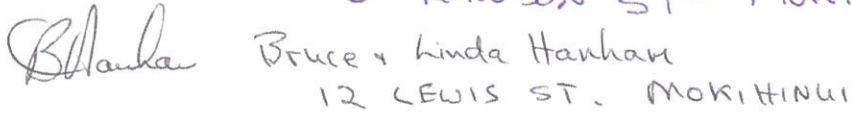 ST
Bruce & Linda Hanham
12 LEWIS ST. MOKIHINUI